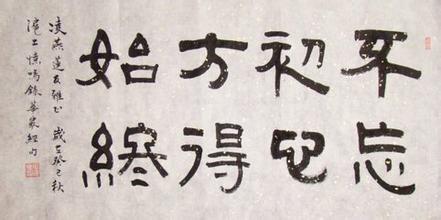 不忘
初心
方得
始終
凌燕蓮友雅正 歲在癸巳秋
滬上鳴錄華嚴經句